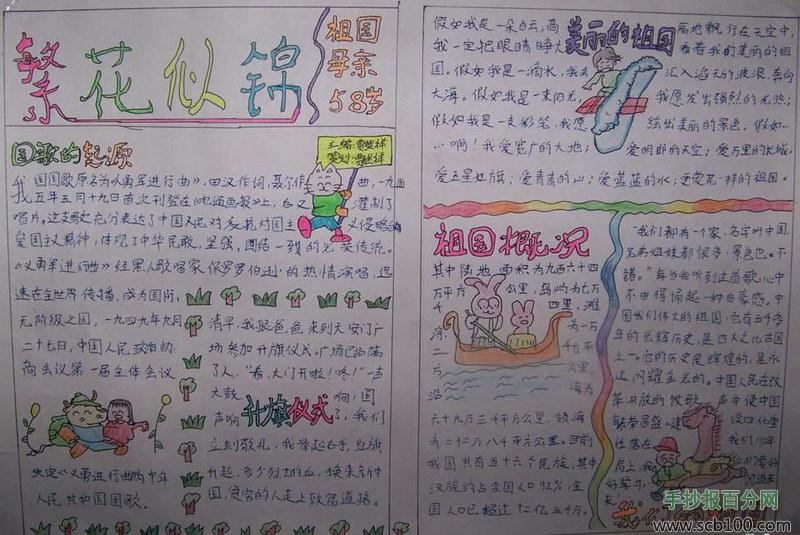 繁花似锦
祖国
母亲
58岁
国歌的起源
我国国歌原名为《义勇军进行曲》,田汉作词,聂尔作曲,一九
五年五月十九日首次刊登在
唱片。这支歌充分表达了中国人民对
爱国主义精神,体现了中华民族,坚强,团结一致的光荣传统。
《义勇军进行曲》经黑人歌唱家保罗罗伯逊的热情演唱,迅
速在全世界传播,成为国际,
无阶级之国,一九四九年九月
二十七日,中国人民政治协
商会议第一届全体会议
决定《义勇军进行曲》为中华
人民共和国国歌。
清早,我跟爸爸来到天安门广
场参加升旗仪式,广场已站满
了人,“看,大门开啦!咚!”一声
大鼓响,国
声响
升旗仪式
了,我们
立刻敬礼,我举起右手,红旗
升起,多少烈士的血,换来新中
国,贫穷的人走上致富道路。
美丽的祖国
假如我是一朵白云,高高地飘行在天空中,
我一定把眼睛睁大,看看我们美丽的祖
国。假如我是一滴水,我会汇入滔天的波浪,奔向
大海。假如我是一束阳光,我愿发出强烈的光热;
假如我是一支彩笔,我愿绘出美丽的景色;假如…
…啊!我爱宽广的大地;爱明朗的天空;爱万里的长城;
爱五星红旗;爱青青的山;爱蓝蓝的水;更爱花一样的祖国。
祖国概况
其中陆地面积为九百六十四
万平方公里,岛屿为七万
四里,滩
涂
为一万
二
七千平
万
公里
沿
海为
六十九万三千平方公里,领海
为三十二万八千平方公里,目前
我国共有五十六个民族,其中
汉族约占全国人口92%,全
国人口已超过十二亿五千万。
“我们都有一个家,名字叫中国,
兄弟姐妹都很多,景色也不
错。”每当我听到这首歌,心中
不由得涌起一种自豪感。中
国我们伟大的祖国,它有五千多
年的光辉历史,是四大文化古国
之一,它的历史是辉煌的,是永
远闪耀金光的。中国人民在改
革开放的
声中使中国
我们
手抄报百分网
www.scb100.com